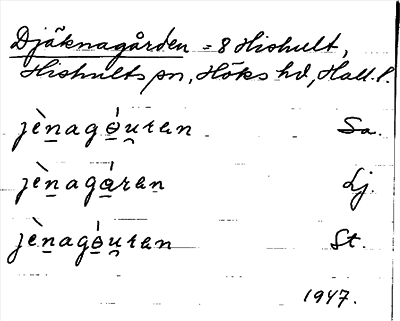 Djäknagården = 8 Hishult,
Hishults sn, Höks hd, Hall. l.
jè̀nagó̱u̯ran Sa.
jè̀nagá̱ran Lj.
jè̀nagó̱u̯ran St.
1947.